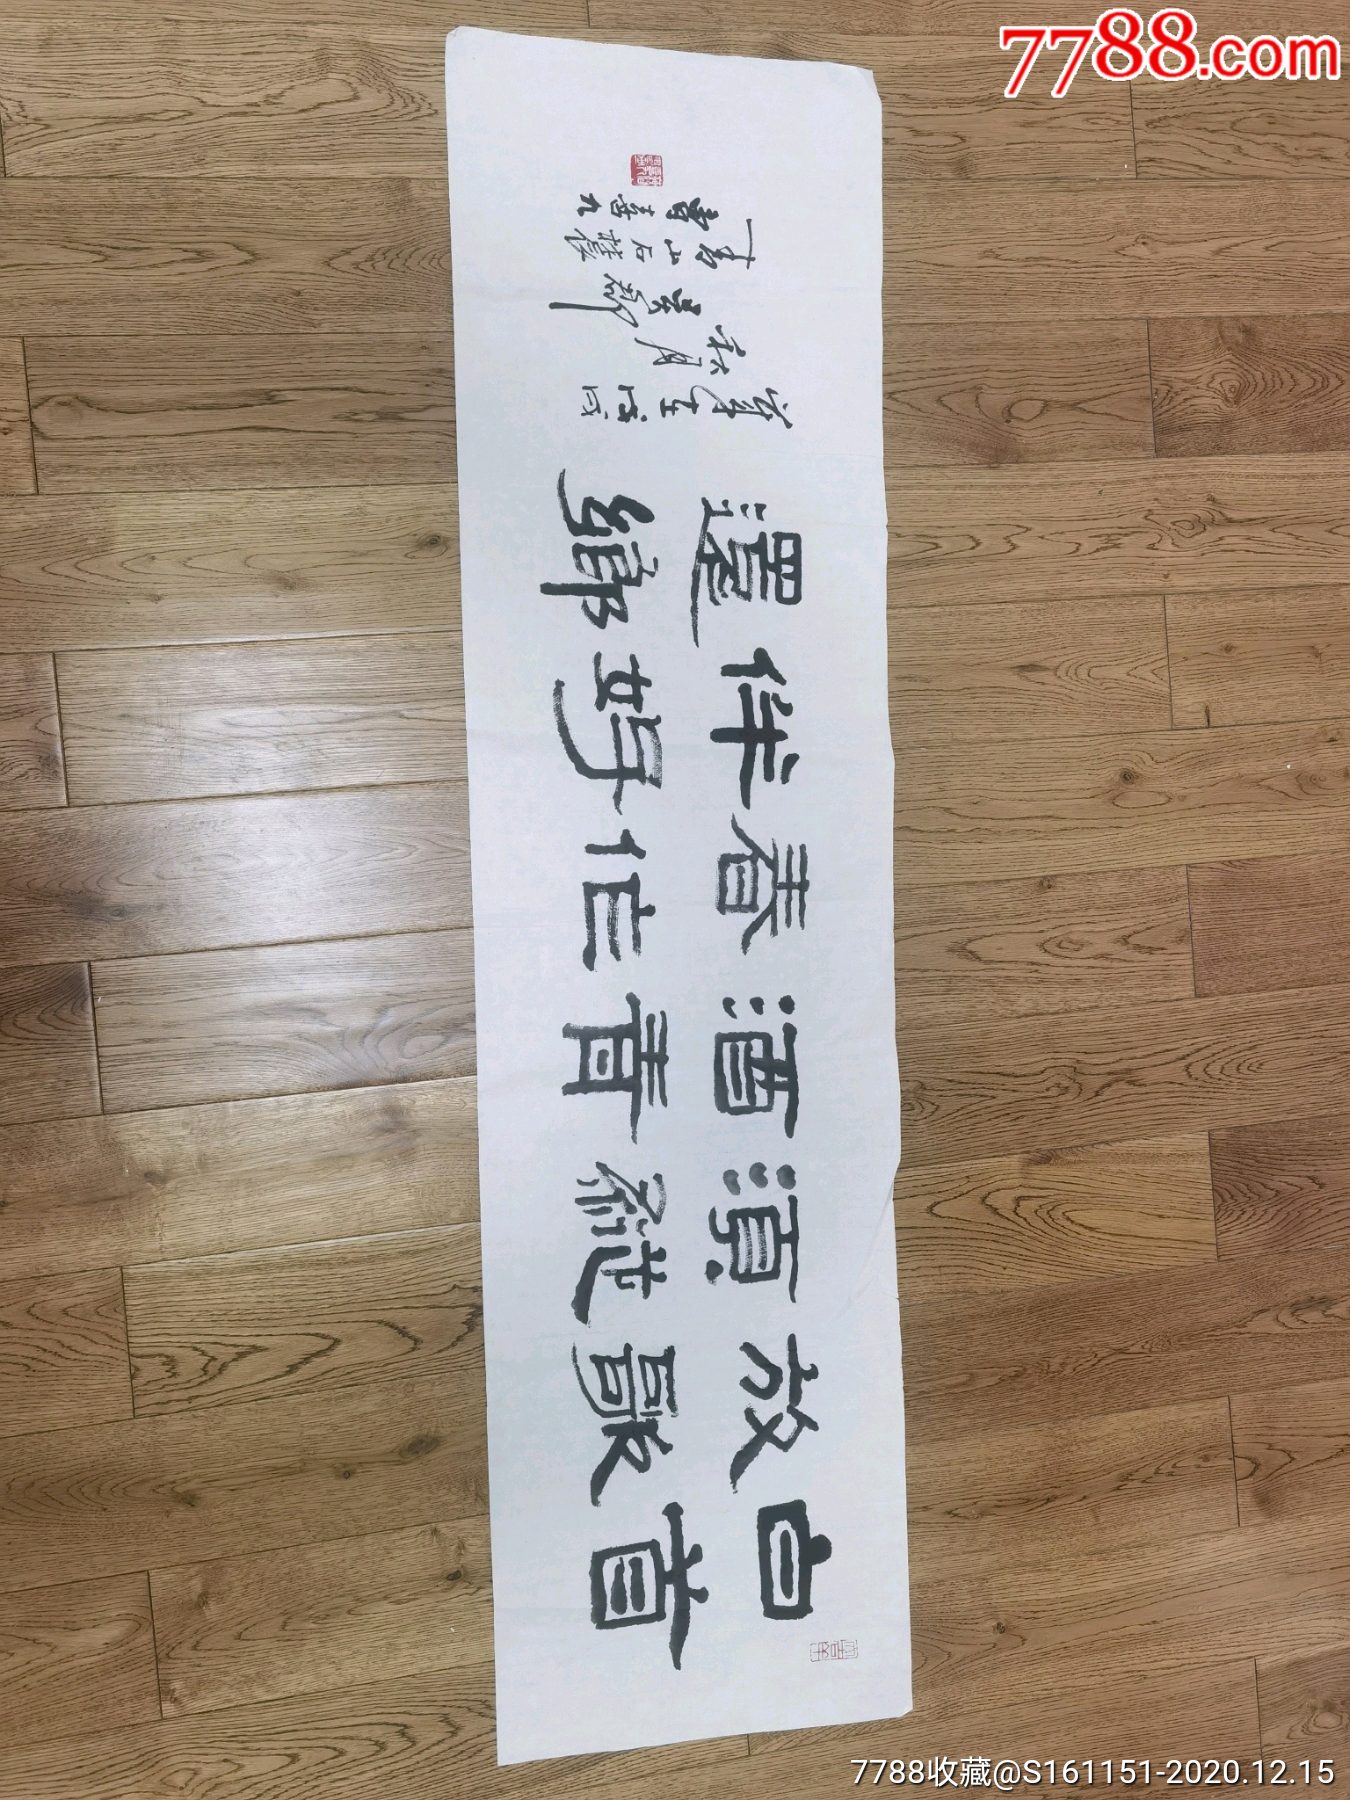 7788.com
白首
放歌
須縱
酒青
春作
伴好
還鄉
歲在戊戌
秋月
7788收藏@S161151-2020.12.15